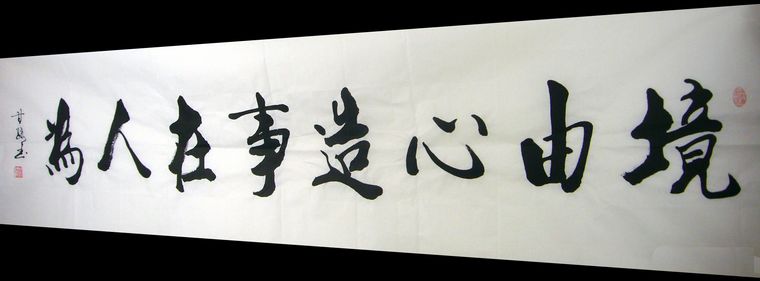 境由心造事在人為